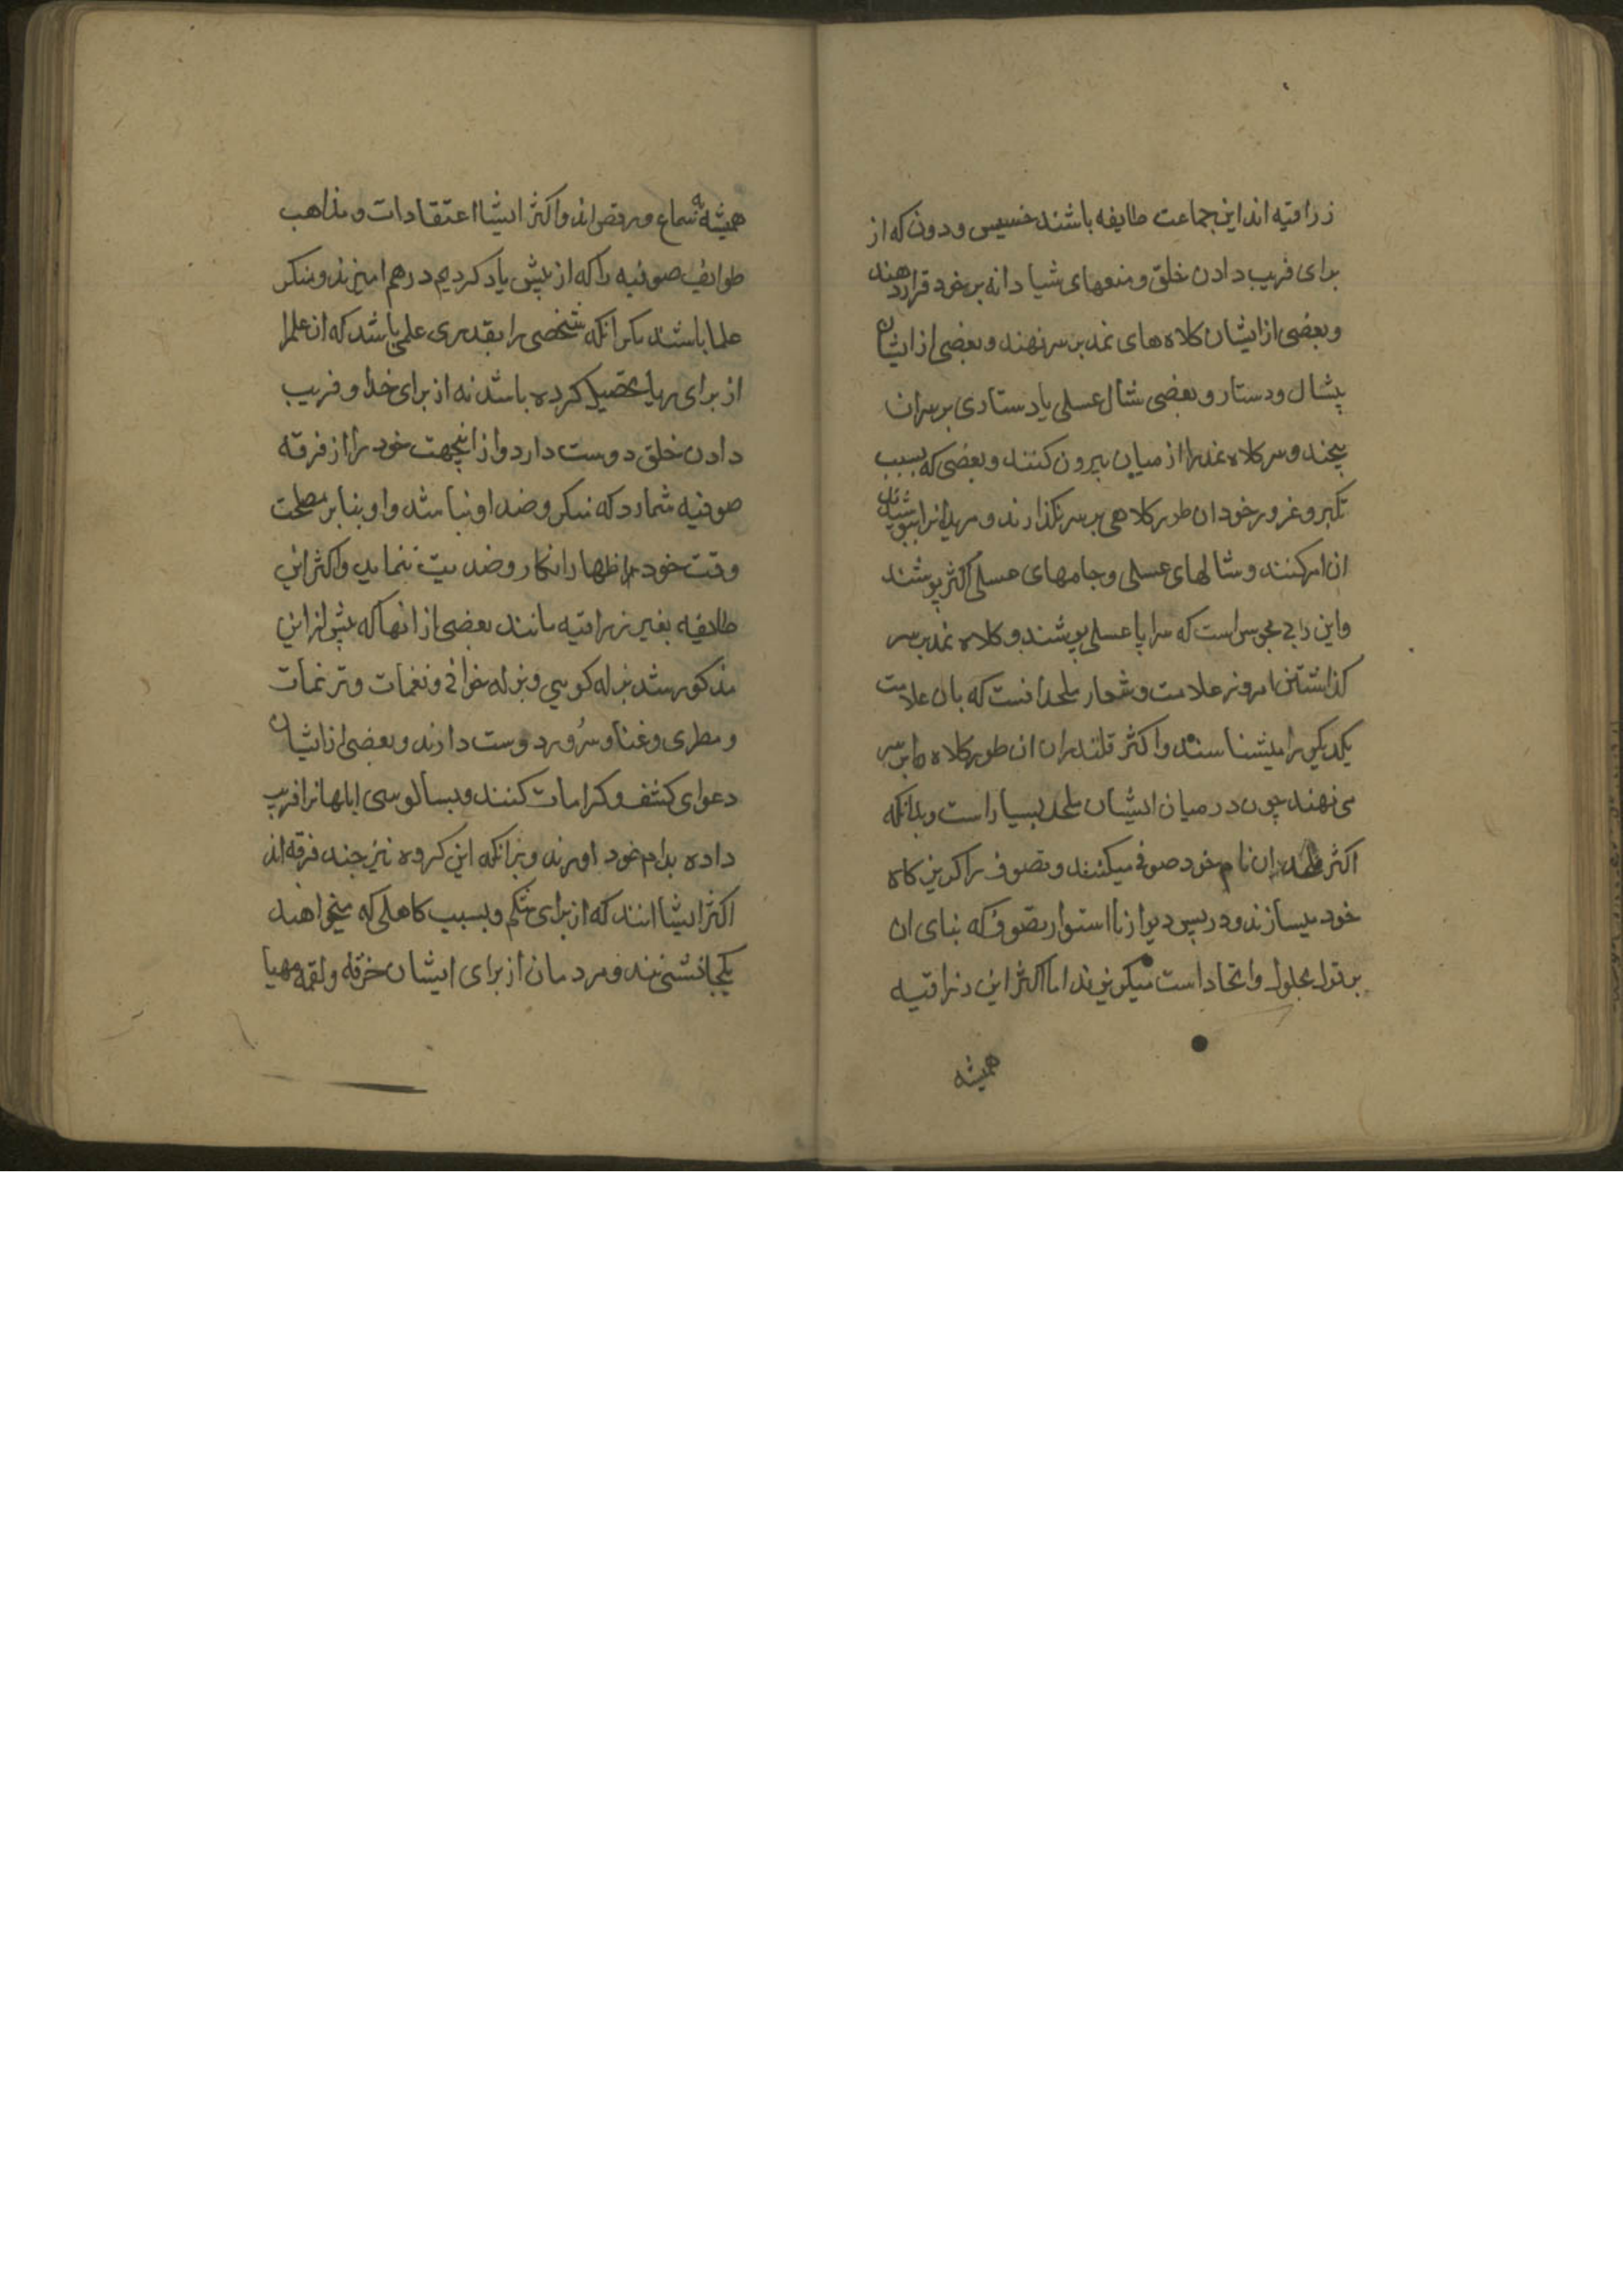 زراقیه اند این جماعت طایفه باشند خسیس و دون که از
برای فریب دادن خلق وضعهای شیادانه بر خود قرار دهند
و بعضی از ایشان کلاه های نمد بر سر نهند و بعضی از ایشان
شال و دستار و بعضی شال عسلی یا دستاری بر سر ان
پیچند و سر کلاه نمد را از میان بیرون کنند و بعضی که بسبب
تکبر و غرور خود ان طور کلاهی بر سر نگذارند و مریدانرا بپوشیدن
ان امر کنند و شالهای عسلی و جامهای عسلی اکثر پوشند
و این زی مجوس است که سراپا عسلی پوشند و کلاه نمد بر سر
گذاشتن امروز علامت و شعار ملحدانست که بان علامت
یکدیگر را میشناسند و اکثر قلندران ان طور کلاه را بر سر
می نهند چون در میان ایشان ملحد بسیار است و بدانکه
اکثر ملحدان نام خود صوفی میکنند و تصوف را کریزکاه
خود میسازند و در پس دیوار نا استوار تصوف که بنای ان
بر قول بحلول و اتحاد است میکریزند اما اکثر این زراقیه
همیشه
همیشه بسماع و رقص اند و اکثر ایشا اعتقادات و مذاهب
طوایف صوفیه را که از پیش یاد کردیم در هم امیزند و منکر
علما باشند مکر انکه شخصی را بقدری علمی باشد که ان علم را
از برای ریا تحصیل کرده باشد نه از برای خدا و فریب
دادن خلق دوست دارد و از اینجهت خود را از فرقه
صوفیه شمارد که منکر و ضد او نباشند و او بنا بر مصلحت
وقت خود را اظهار انکار و ضدیت ننماید و اکثر این
طایفه بغیر زراقیه مانند بعضی از انها که پیش از این
مذکور شد بزله کویی و بزله خوانی و نغمات و ترنمات
و مطربی و غنا و سُرود دوست دارند و بعضی از ایشان
دعوای کشف و کرامات کنند و بسالوسی ابلهانرا فریب
داده بدام خود اورند و بدانکه این کروه نیز چند فرقه اند
اکثر ایشا انند که از برای شکم و بسبب کاهلی که میخواهند
یکجا نشینند و مردمان از برای ایشان خرقه و لقمه مهیا